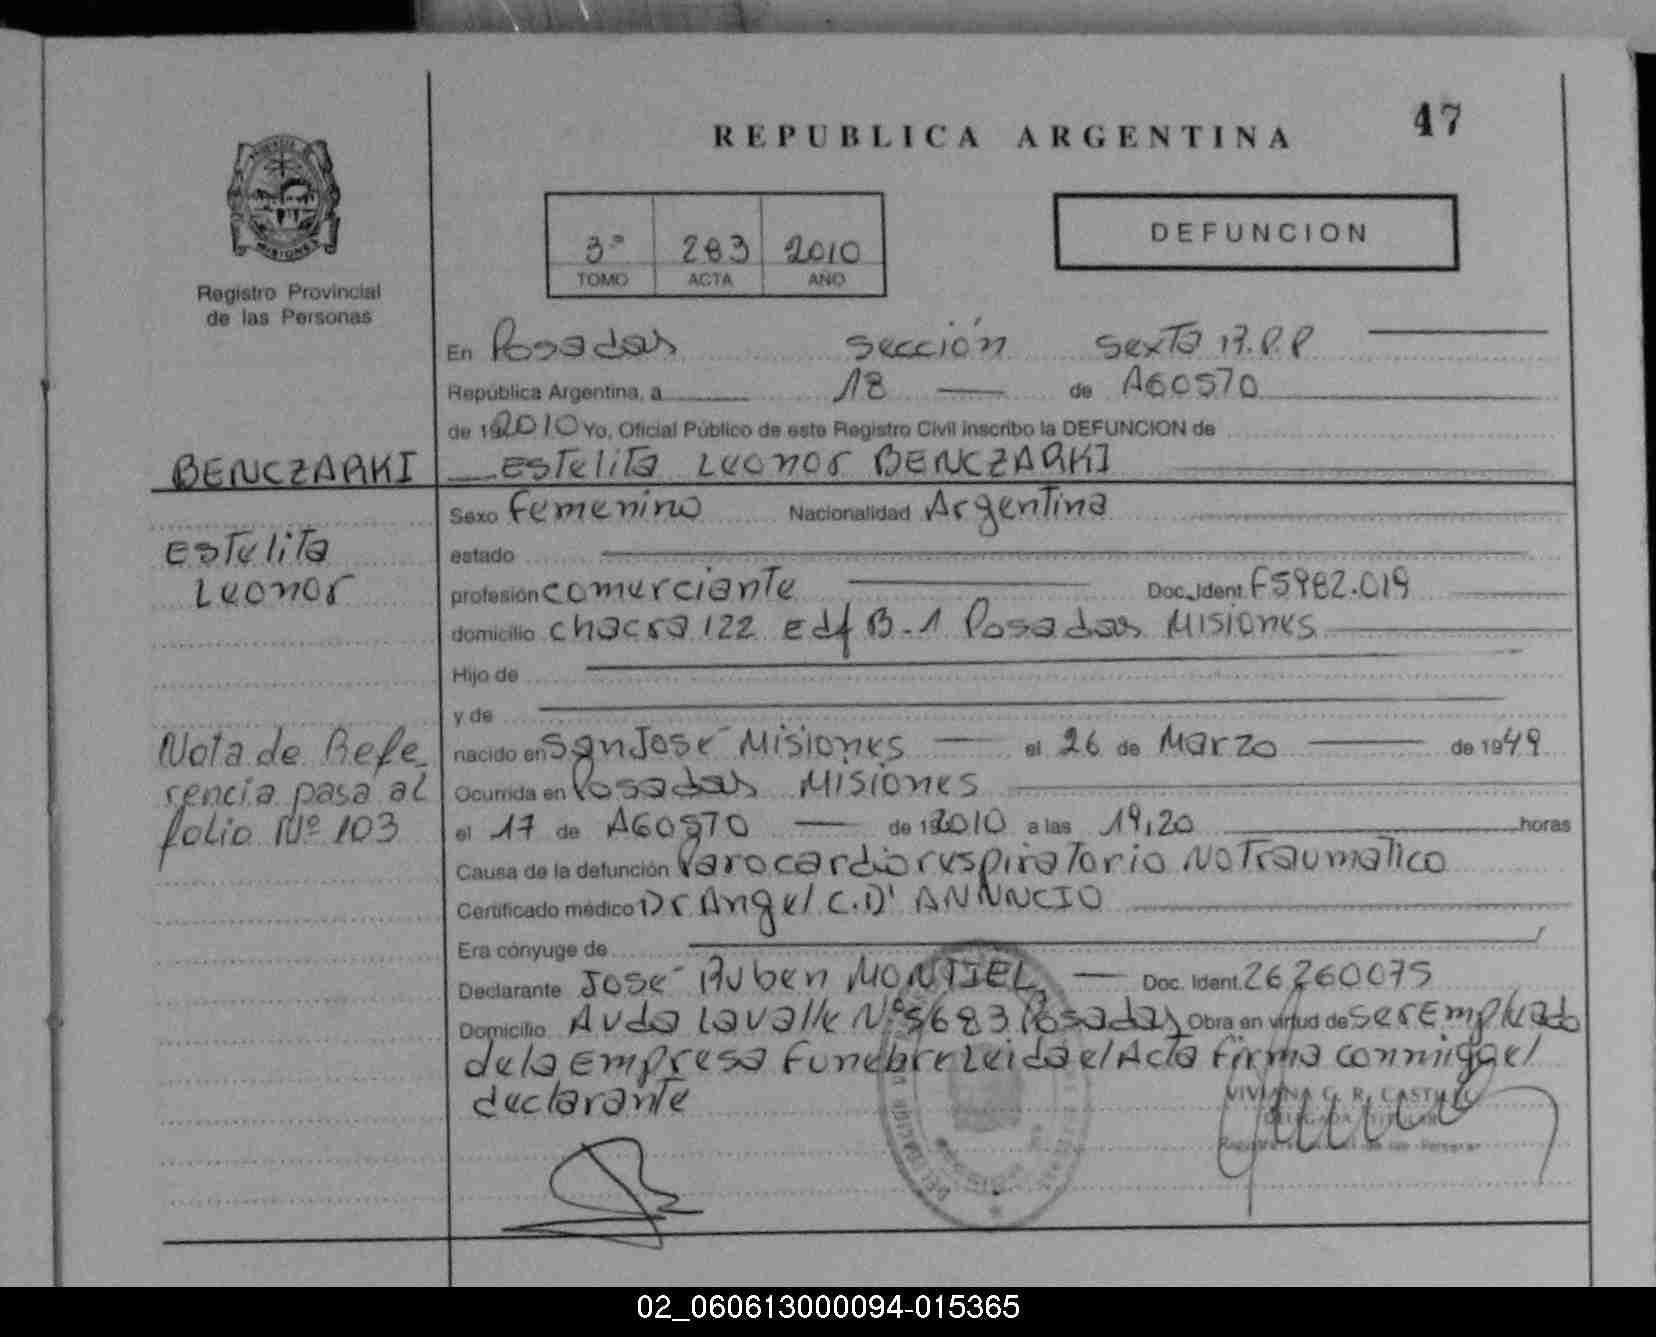 47
REPUBLICA ARGENTINA
3º 283 2010
TOMO ACTA AÑO
DEFUNCION
MISIONES
Registro Provincial
de las Personas
En Posadas sección sexta R.P.P
República Argentina, a 18 de AGOSTO
de 192010 Yo, Oficial Público de este Registro Civil inscribo la DEFUNCION de
BENCZARKI
Estelita Leonor BENCZARKI
Sexo femenino Nacionalidad Argentina
Estelita
Leonor
estado
profesión comerciante Doc. Ident. F5982.019
domicilio chacra 122 Edf B-1 Posadas Misiones
Hijo de
y de
Nota de Refe
rencia pasa al
folio Nº 103
nacido en San José Misiones el 26 de Marzo de 1949
Ocurrida en Posadas Misiones
el 17 de AGOSTO de 192010 a las 19,20 horas
Causa de la defunción Parocardiorespiratorio No Traumatico
Certificado médico Dr Angel C. D' ANNUNCIO
Era cónyuge de
Declarante José Ruben MONTIEL Doc. Ident. 26260075
Domicilio Avda Lavalle Nº 5683 Posadas Obra en virtud de ser Empleado
de la Empresa Funebre Leida el Acta firma conmigo el
declarante
VIVIANA G. R. CASTILLO
02_060613000094-015365